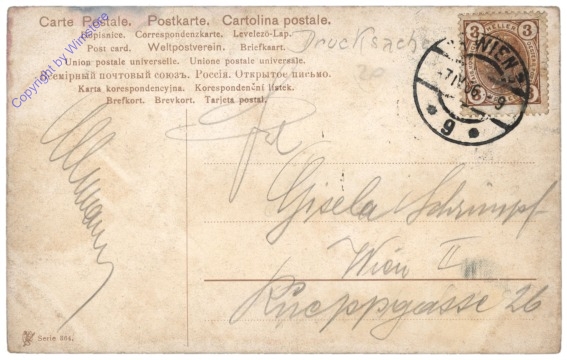 Carte Postale. Postkarte. Cartolina postale.
Dopisnice. Correspondenzkarte. Levelező-Lap.
Post card. Weltpostverein. Briefkaart.
Union postale universelle. Unione postale universale.
Всемірный почтовый союзъ. Россія. Открытое письмо.
Karta korespondencyjna. Korespondenční lístek.
Brefkort. Brevkort. Tarjeta postal.
Copyright by Winstore
Drucksache
20
3 HELLER 3
WIEN
7 IV 06
9
Gisela Schrimpf
Wien II
Rueppgasse 26
Serie 884.